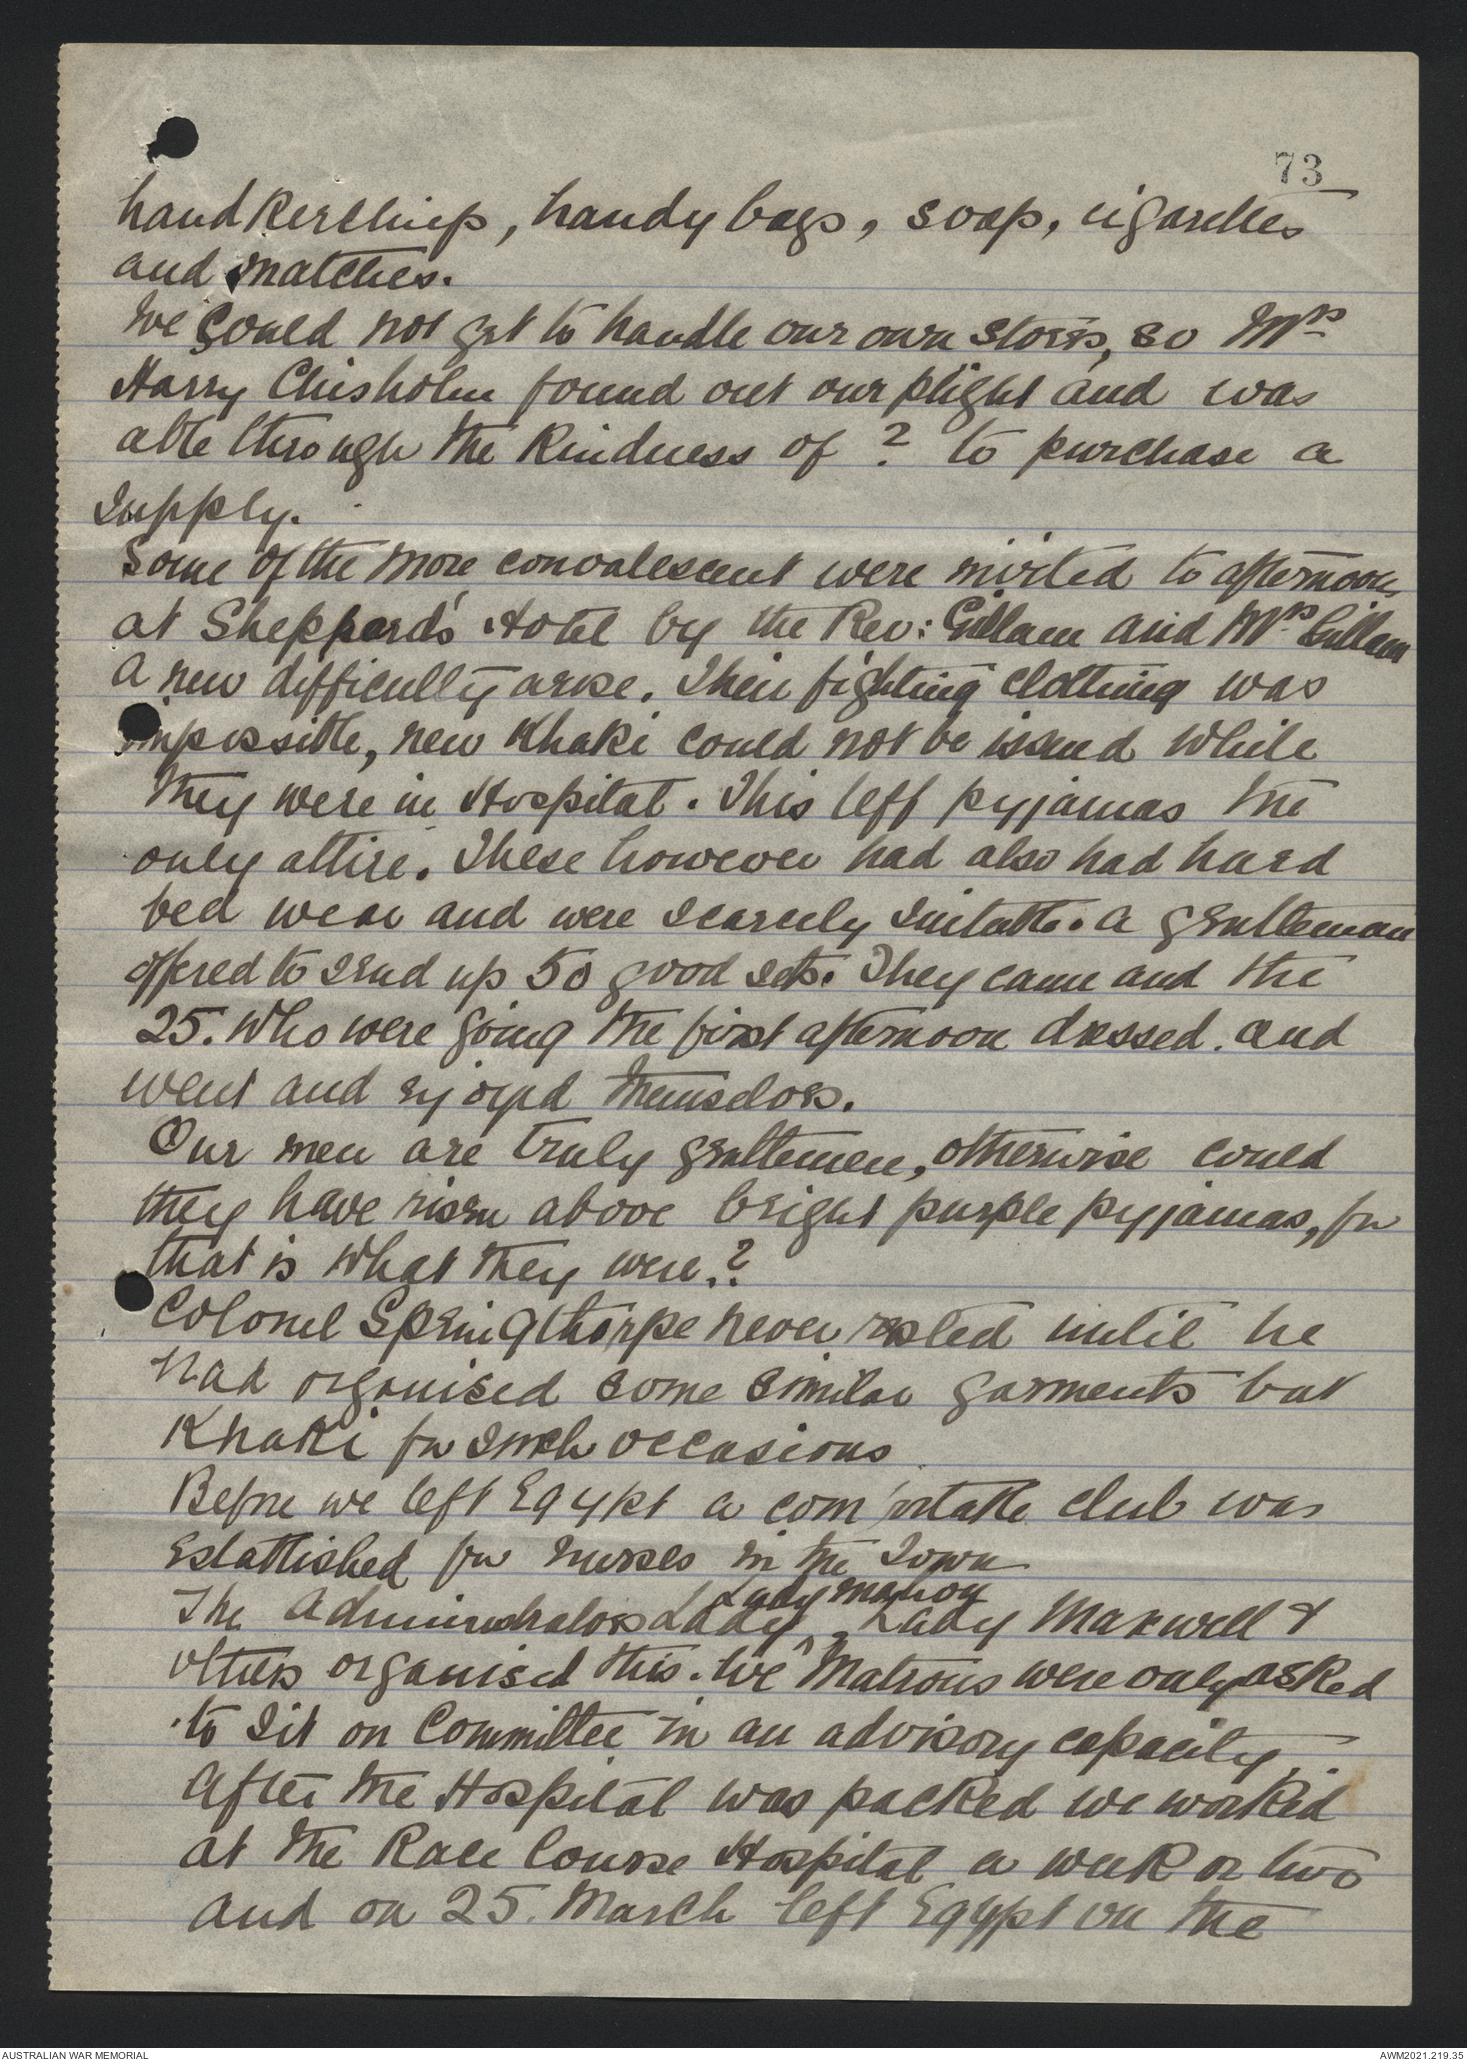 73
handkerchiefs, handy bags, soap, cigarettes
and matches.
We could not get to handle our own stores, so Mrs
Harry Chisholm found out our plight and was
able through the kindness of ? to purchase a
supply.
Some of the more convalescent were invited to afternoon
at Sheppard's Hotel by the Rev: Gillam and Mrs Gillam
A new difficulty arose. Their fighting clothing was
impossible, new khaki could not be issued while
they were in Hospital. This left pyjamas the
only attire. These however had also had hard
bed wear and were scarcely suitable. A gentleman
offered to send up 50 good sets. They came and the
25. who were going the first afternoon dressed. and
went and enjoyed themselves.
Our men are truly gentlemen, otherwise could
they have risen above bright purple pyjamas, for
that is what they were.?
Colonel Springthorpe never rested until he
had organised some similar garments but
Khaki for such occasions
Before we left Egypt a comfortable club was
established for nurses in the Town
Lady Mahon
The Administrators Lady, Lady Maxwell &
others organised this. We Matrons were only asked
to sit on Committee in an advisory capacity.
After the Hospital was packed we worked
at the Race Course Hospital a week or two
and on 25. March left Egypt on the
AUSTRALIAN WAR MEMORIAL
AWM2021.219.35